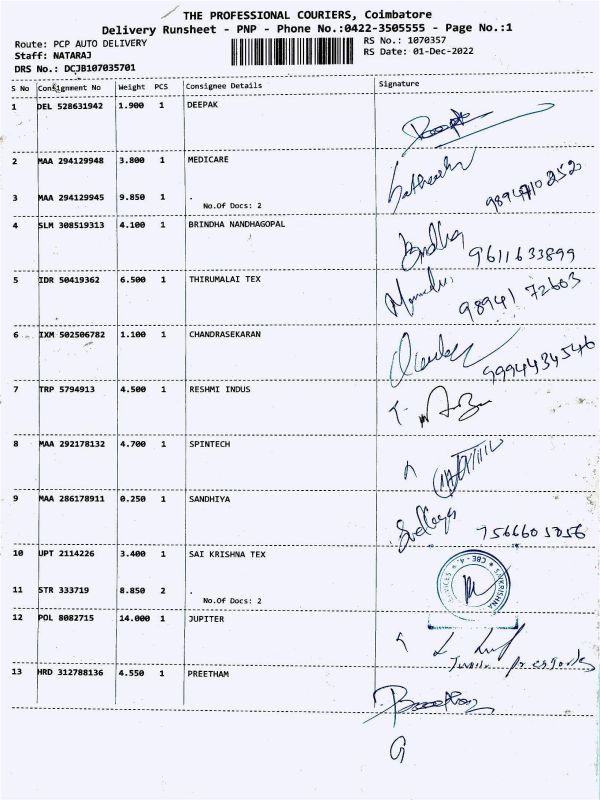 THE PROFESSIONAL COURIERS, Coimbatore
Delivery Runsheet - PNP - Phone No.:0422-3505555 - Page No.:1
Route: PCP AUTO DELIVERY
RS No.: 1070357
Staff: NATARAJ
RS Date: 01-Dec-2022
DRS No.: DCJB107035701
S No Consignment No Weight PCS Consignee Details Signature
1 DEL 528631942 1.900 1 DEEPAK
2 MAA 294129948 3.800 1 MEDICARE
3 MAA 294129945 9.850 1 .
No.Of Docs: 2
4 SLM 308519313 4.100 1 BRINDHA NANDHAGOPAL
9611633899
5 IDR 50419362 6.500 1 THIRUMALAI TEX
98941 72603
6 IXM 502506782 1.100 1 CHANDRASEKARAN
9994434546
7 TRP 5794913 4.500 1 RESHMI INDUS
8 MAA 292178132 4.700 1 SPINTECH
9 MAA 286178911 0.250 1 SANDHIYA
10 UPT 2114226 3.400 1 SAI KRISHNA TEX
11 STR 333719 8.850 2 .
No.Of Docs: 2
12 POL 8082715 14.000 1 JUPITER
13 HRD 312788136 4.550 1 PREETHAM